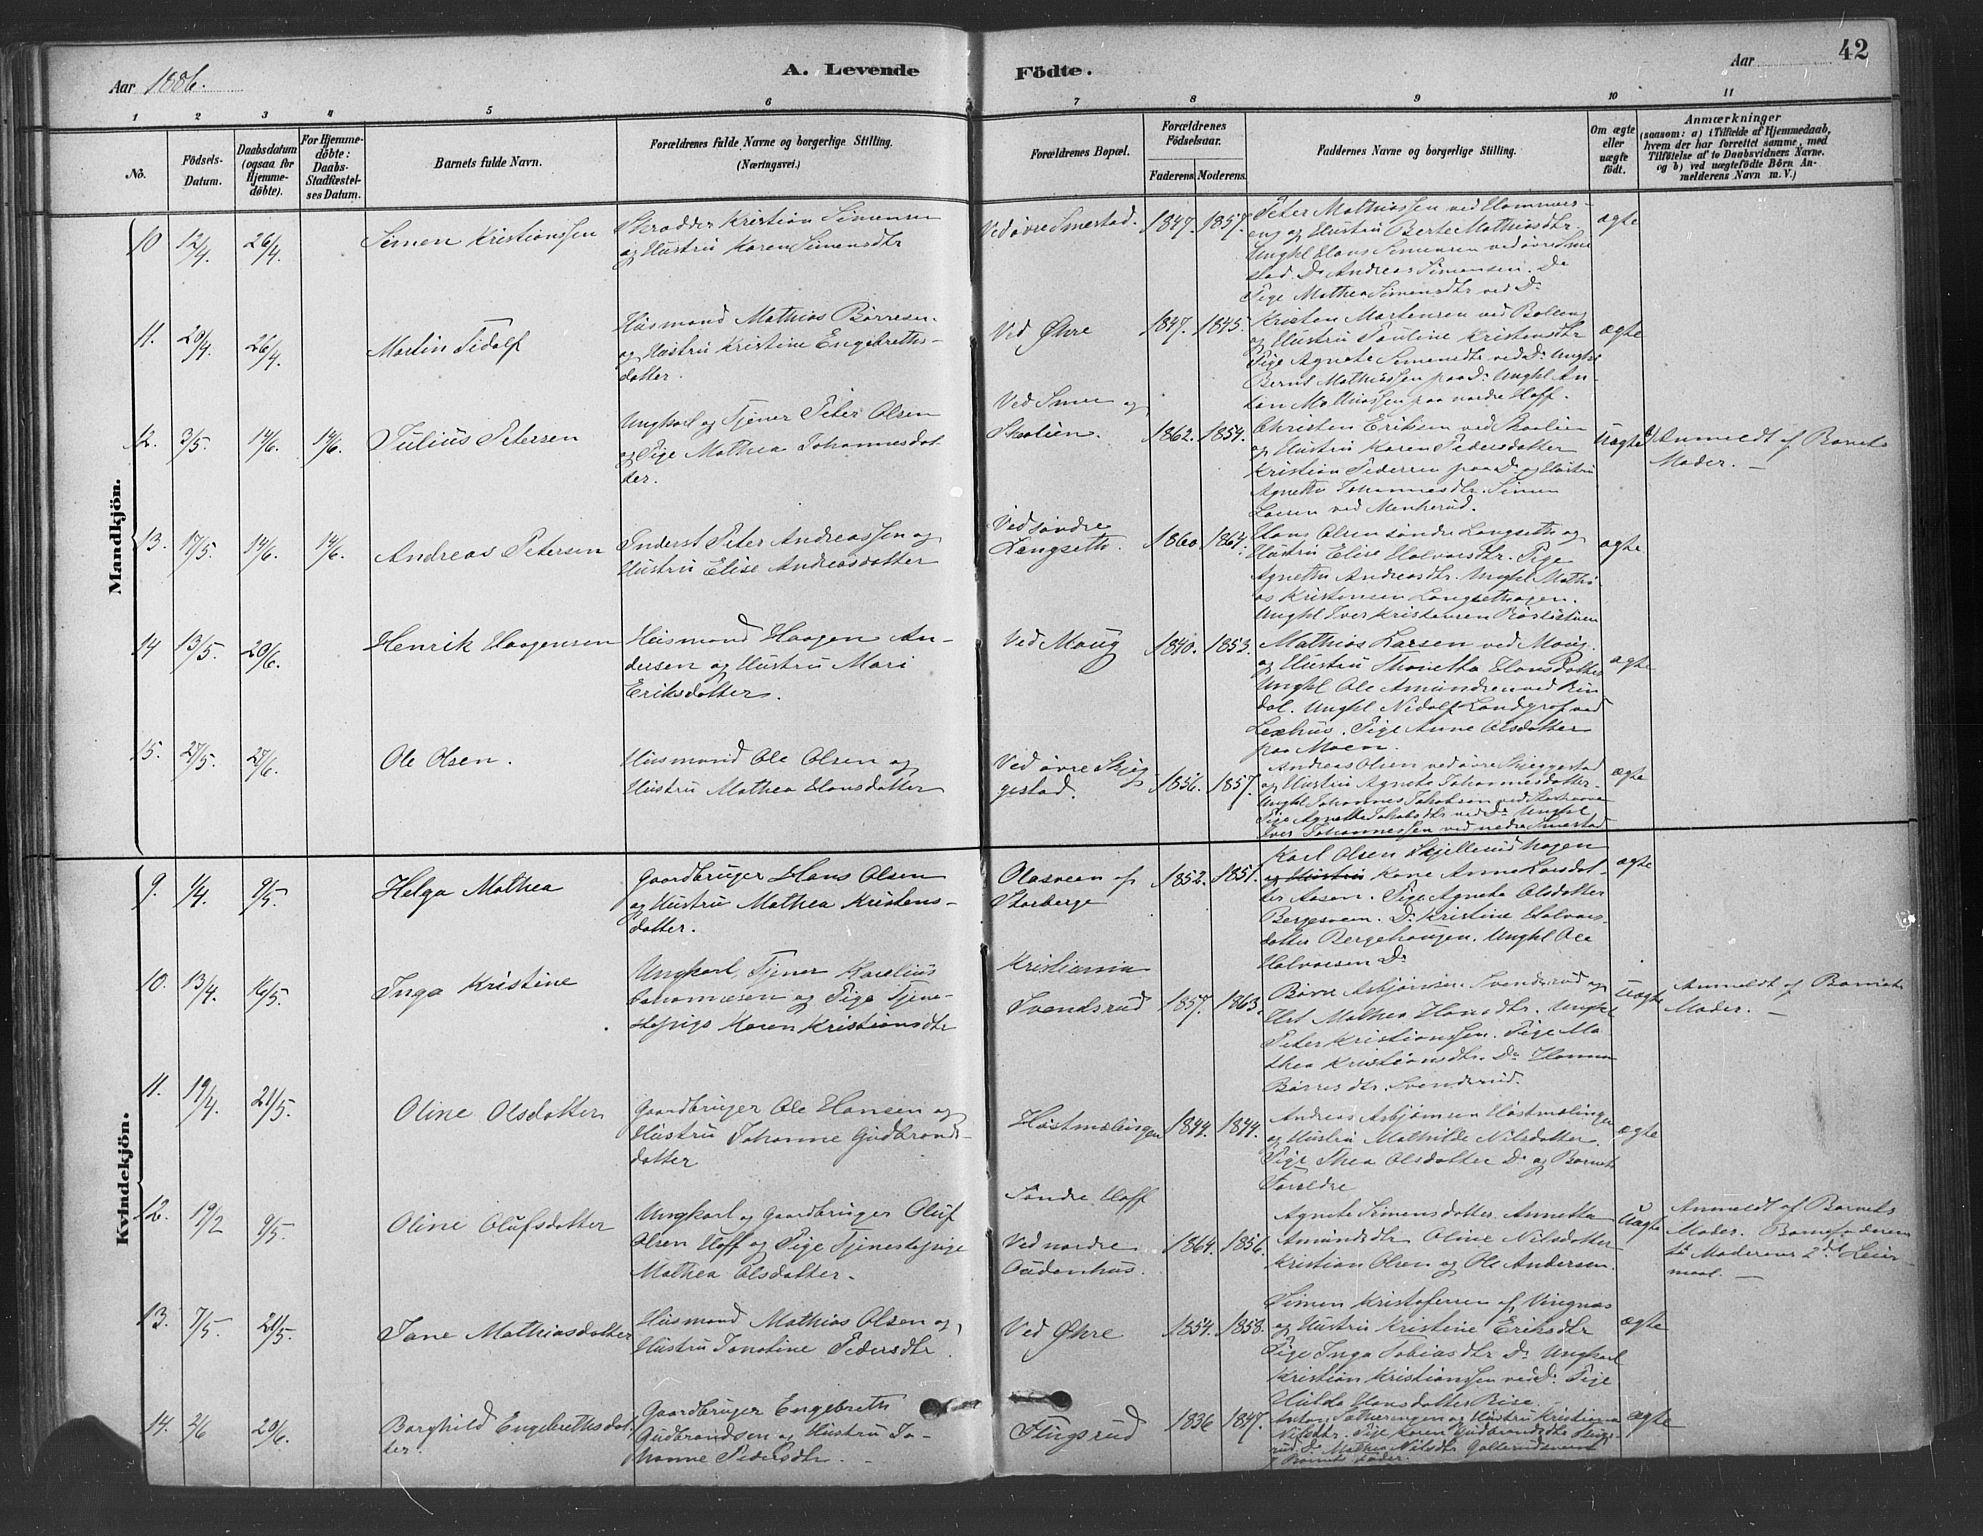 42
Aar 1886.
A. Levende Födte.
Aar
1 2 3 4 5 6 7 8 9 10 11
No.
Födsels-Datum.
Daabsdatum (ogsaa for Hjemme-döbte).
For Hjemme-döbte: Daabs-Stadfæstel-ses Datum.
Barnets fulde Navn.
Forældrenes fulde Navne og borgerlige Stilling.
(Næringsvei.)
Forældrenes Bopæl.
Forældrenes Födselsaar.
Faderens. Moderens.
Faddernes Navne og borgerlige Stilling.
Om ægte eller uægte født.
Anmærkninger
(saasom: a) i Tilfælde af Hjemmedaab, hvem der har forrettet samme, med Tilföielse af to Daabsvidners Navne. og b) ved uægtefödte Börn An-melderens Navn m. V.)
Mandkjön.
10 12/4. 26/4. Simen Kristianssen
Skrædder Kristian Simensen
og Hustru Karen Simensdtr
Ved øvre Smestad. 1847. 1857.
Peter Mathiassen ved Hammers-
eng og Hustru Berte Mathiasdtr.
Unghl Hans Simensen ved øvre Sme
stad. Do Andreas Simensen. Do
Pige Mathea Simensdtr ved Do
ægte
11. 20/4. 26/4. Martin Fidolf
Husmand Mathias Børresen
og Hustru Kristine Engebreths-
datter.
Ved Øhre 1847. 1845.
Kristian Martensen ved
og Hustru Pauline Kristensdtr
Pige Agnete Simensdtr ved Do Unghl
Bernt Mathiassen paa Do Unghl An-
ton Mathiassen paa nordre Hoff.
ægte
12. 3/5. 14/6. 14/6. Julius Petersen
Ungkarl og Tjener Peter Olsen
og Pige Mathea Johannesdat
ter.
Ved Smee og
Skaalien. 1862. 1854.
Christen Eriksen ved Skaalien
og Hustru Karen Pedersdatter
Kristian Pedersen paa Do og Hustru
Agnethe Johannesdtr. Simen
Larsen ved Menkerud.
Uægte
Anmeldt af Barnets
Moder. —
13. 17/5. 14/6. 14/6. Andreas Petersen
Inderst Peter Andreassen og
Hustru Elise Andreasdatter
Ved søndre
Langseth. 1860 1864.
Hans Olsen søndre Langseth og
Hustru Elise Halvorsdtr. Pige
Agnethe Andreasdtr. Unghl Mathi
as Kristensen Langsethagen.
Unghl Iver Kristensen
ægte
14 13/5. 20/6. Henrik Haagensen
Husmand Haagen An-
dersen og Hustru Mari
Eriksdatter.
Ved Maug 1840. 1853.
Mathias Larsen ved Maug.
og Hustru Thonette Hansdatter
Unghl Ole Amundsen ved Rin
dal. Unghl Nidolf Landgraf ved
Lexhus. Pige Anne Olsdatter
paa Moen.
ægte
15. 27/5. 27/6. Ole Olsen.
Husmand Ole Olsen og
Hustru Mathea Hansdatter
Ved øvre Skjeg
gestad. 1856. 1857.
Andreas Olsen ved øvre Skjeggestad
og Hustru Agnete Johannesdatter
Unghl Johannes Jakobsen ved
Pige Agnethe Jakobsdtr ved Do Unghl
Iver Johannessen ved nedre Smestad
ægte
Kvindekjön.
9. 1/4. 9/5. Helga Mathea
Gaardbruger Hans Olsen
og Hustru Mathea Kristens-
datter.
Olasveen af
Storberge 1852. 1851.
Karl Olsen Skjellerudhagen
og Hustru Kone Anne Larsdat-
ter Aasen. Pige Agnete Olsdatter
Bergesveen. Do Kristine Halvors-
datter Bergehaugen. Unghl Ole
Halvorsen Do
ægte
10. 13/4. 16/5. Inga Kristine
Ungkarl, Tjener Karelius
Johannesen og Pige Tjene-
stepige Karen Kristiansdtr
Kristiania
Svendsrud 1857. 1863.
Børre Asbjørnsen Svendsrud og
Hst Mathea Hansdtr. Unghl
Peter Kristianssen. Pige Ma
thea Kristiansdtr. Do Hanna
Børresdtr. Svendsrud.
Uægte
Anmeldt af Barnets
Moder. —
11. 19/4. 21/5. Oline Olsdatter
Gaardbruger Ole Hansen og
Hustru Johanne Gudbrands-
datter
Høstmælingen 1844. 1844.
Andreas Asbjørnsen Høstmælingen
og Hustru Mathilde Nilsdatter.
Pige Thea Olsdatter Do og Barnets
Forældre
ægte
12. 19/2 9/5. Oline Olufsdatter
Ungkarl og Gaardbruger Oluf
Olsen Hoff og Pige Tjenestepige
Mathea Olsdatter.
Søndre Hoff
Ved nordre
Oudenhus. 1864. 1856.
Agnete Simensdatter. Annette
Amundsdtr Oline Nilsdatter
Kristian Olsen og Ole Andersen.
Uægte
Anmeldt af Barnets
Moder. Barnefaderens
1ste Moderens 2det Leier
maal. —
13. 7/5. 21/5. Jane Mathiasdatter
Husmand Mathias Olsen og
Hustru Jonetine Pedersdtr.
Ved Øhre 1854. 1858.
Simen Kristofersen af Vingnæs
og Hustru Kristine Eriksdtr
Pige Inga Tobiasdtr Do Ungkarl
Kristian Kristianssen ved Do Pige
Hulda Hansdatter Rise.
ægte
14. 2/6 20/6. Borghild Engebrethsdat
ter
Gaardbruger Engebreth
Gudbrandsen og Hustru Jo-
hanne Pedersdtr. —
Flugsrud 1836 1847.
Anton og Hustru Kristiane
Nilsdtr. Pige Karen Gudbrandsdtr Flugs-
rud. Do Mathea Nilsdtr
og Barnets Fader.
ægte